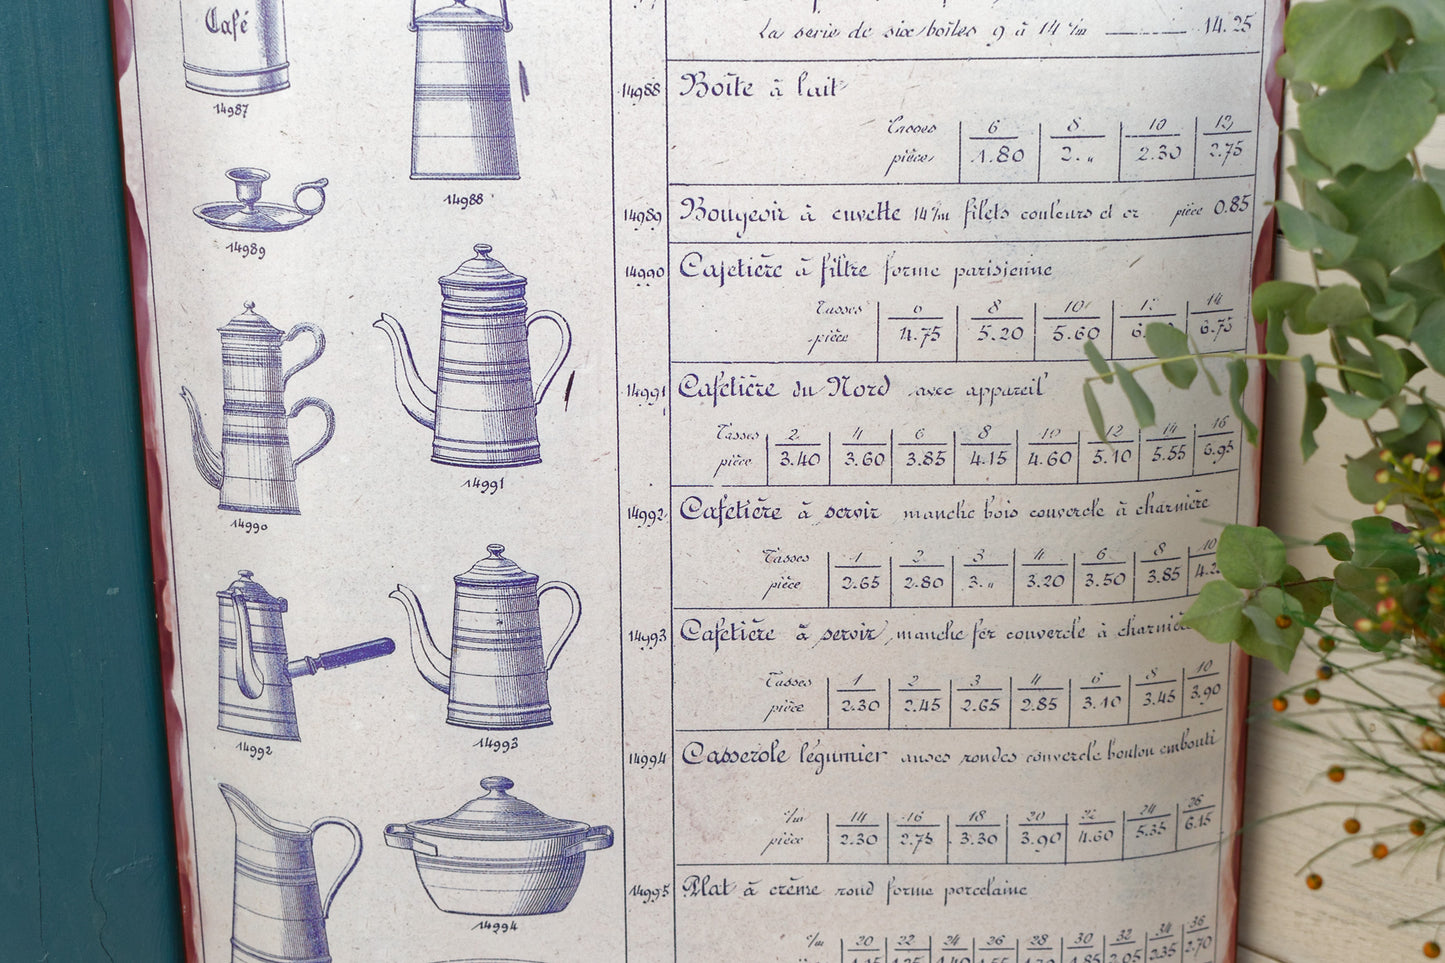 Café
14987
14988
14989
14990
14991
14992
14993
14994
La serie de six boîtes 9 à 14 c/m 14.25
14988 Boîte à lait
Tasses 6 8 10 12
pièce 1.80 2. „ 2.30 2.75
14989 Bougeoir à cuvette 14 c/m filets couleurs et or pièce 0.85
14990 Cafetière à filtre forme parisienne
Tasses 6 8 10 12 14
pièce 4.75 5.20 5.60 6.75
14991 Cafetière du Nord avec appareil
Tasses 2 4 6 8 10 12 14 16
pièce 3.40 3.60 3.85 4.15 4.60 5.10 5.55 6.95
14992 Cafetière à servir manche bois couvercle à charnière
Tasses 1 2 3 4 6 8 10
pièce 2.65 2.80 3. „ 3.20 3.50 3.85
14993 Cafetière à servir manche fer couvercle à charnière
Tasses 1 2 3 4 6 8 10
pièce 2.30 2.45 2.65 2.85 3.10 3.45 3.90
14994 Casserole légumier anses rondes couvercle bouton embouti
c/m 14 16 18 20 22 24 26
pièce 2.30 2.75 3.30 3.90 4.60 5.35 6.15
14995 Plat à crème rond forme porcelaine
c/m 20 22 24 26 28 30 32 34 36
1.85 2.05 2.35 2.70